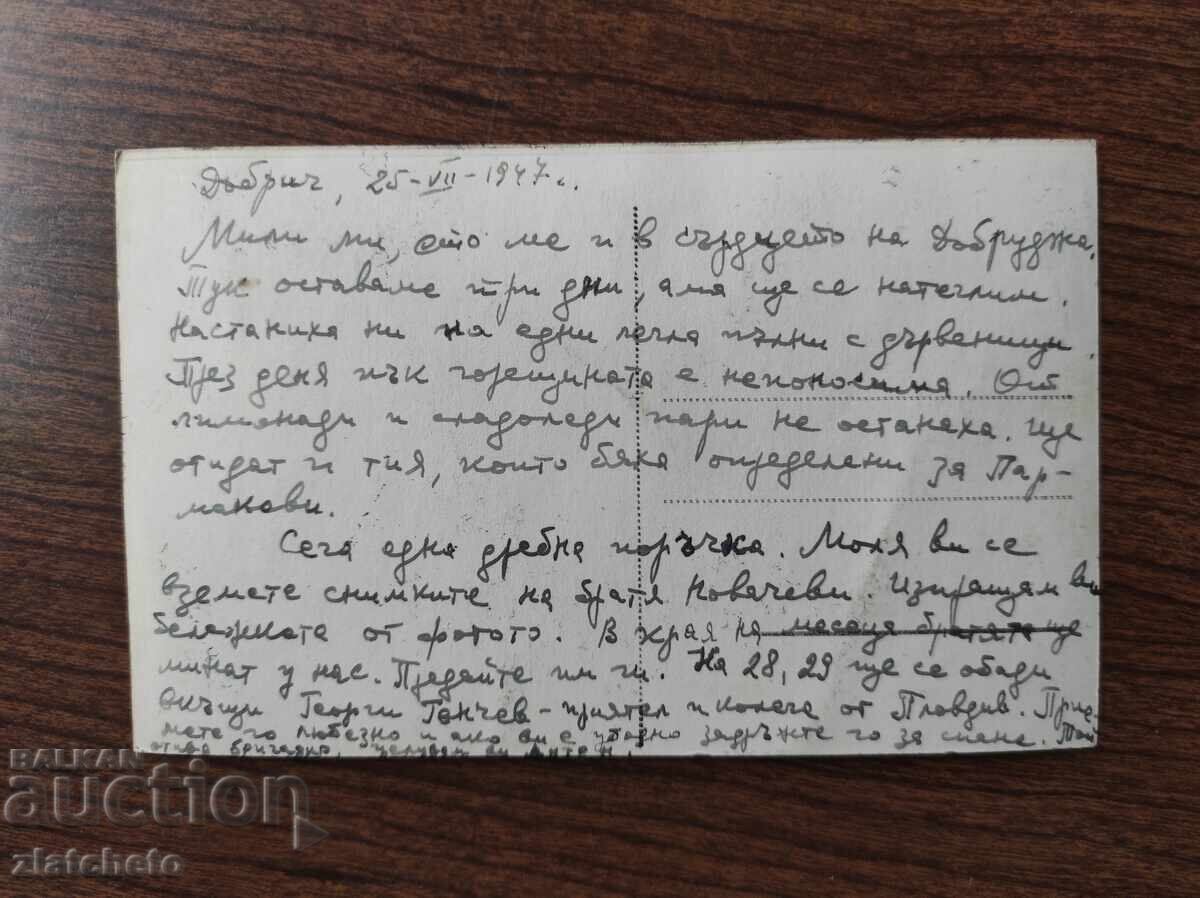 Добрич, 25-VII-1947 г.
Мили ми, ето ме и в сърдцето на Добруджа.
Тук оставаме три дни, ама ще се натеглим.
Настаниха ни на едни легла пълни с дървеници.
През деня пък горещината е непоносима. От
лимонади и сладоледи пари не останаха. Ще
отидат и тия, които бяха определени за Пар-
макови.
Сега една дребна поръчка. Моля ви се
вземете снимките на братя Ковачеви. Изпращам ви
бележката от фотото. В края на месеца братята ще
минат у нас. Предайте им ги. На 28, 29 ще се обади
вкъщи Георги Генчев - приятел и колега от Пловдив. Прие-
мете го любезно и ако ви е угодно задръжте го за спане. Той
отива бригадир. Целувам ви
BALKAN
auction
zlatcheto